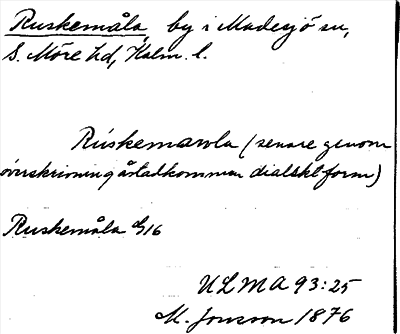 Ruskemåla, by i Madesjö sn,
S. Möre hd, Kalm. l.
Rúskemawla (senare genom
överskrivning åstadkommen dialektform)
Ruskemåla G16
ULMA 93:25
M. Jonsson 1876